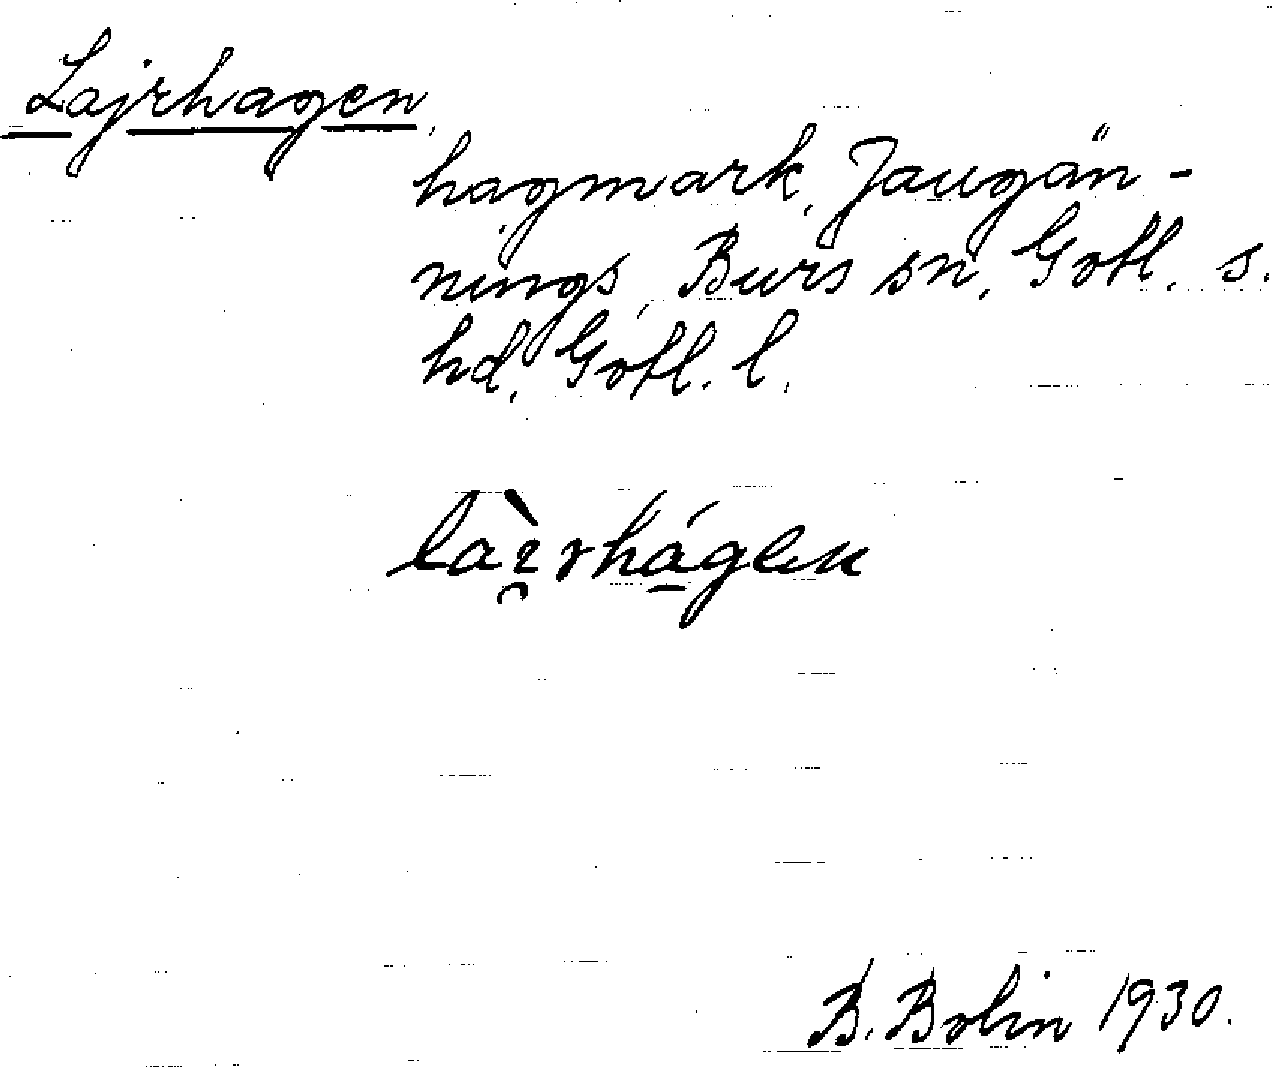 Lajrhagen,
hagmark, Jaugän-
nings, Burs sn, Gotl. s.
hd, Gotl. l.
làɪ̯rhág̱en
B. Bolin 1930.